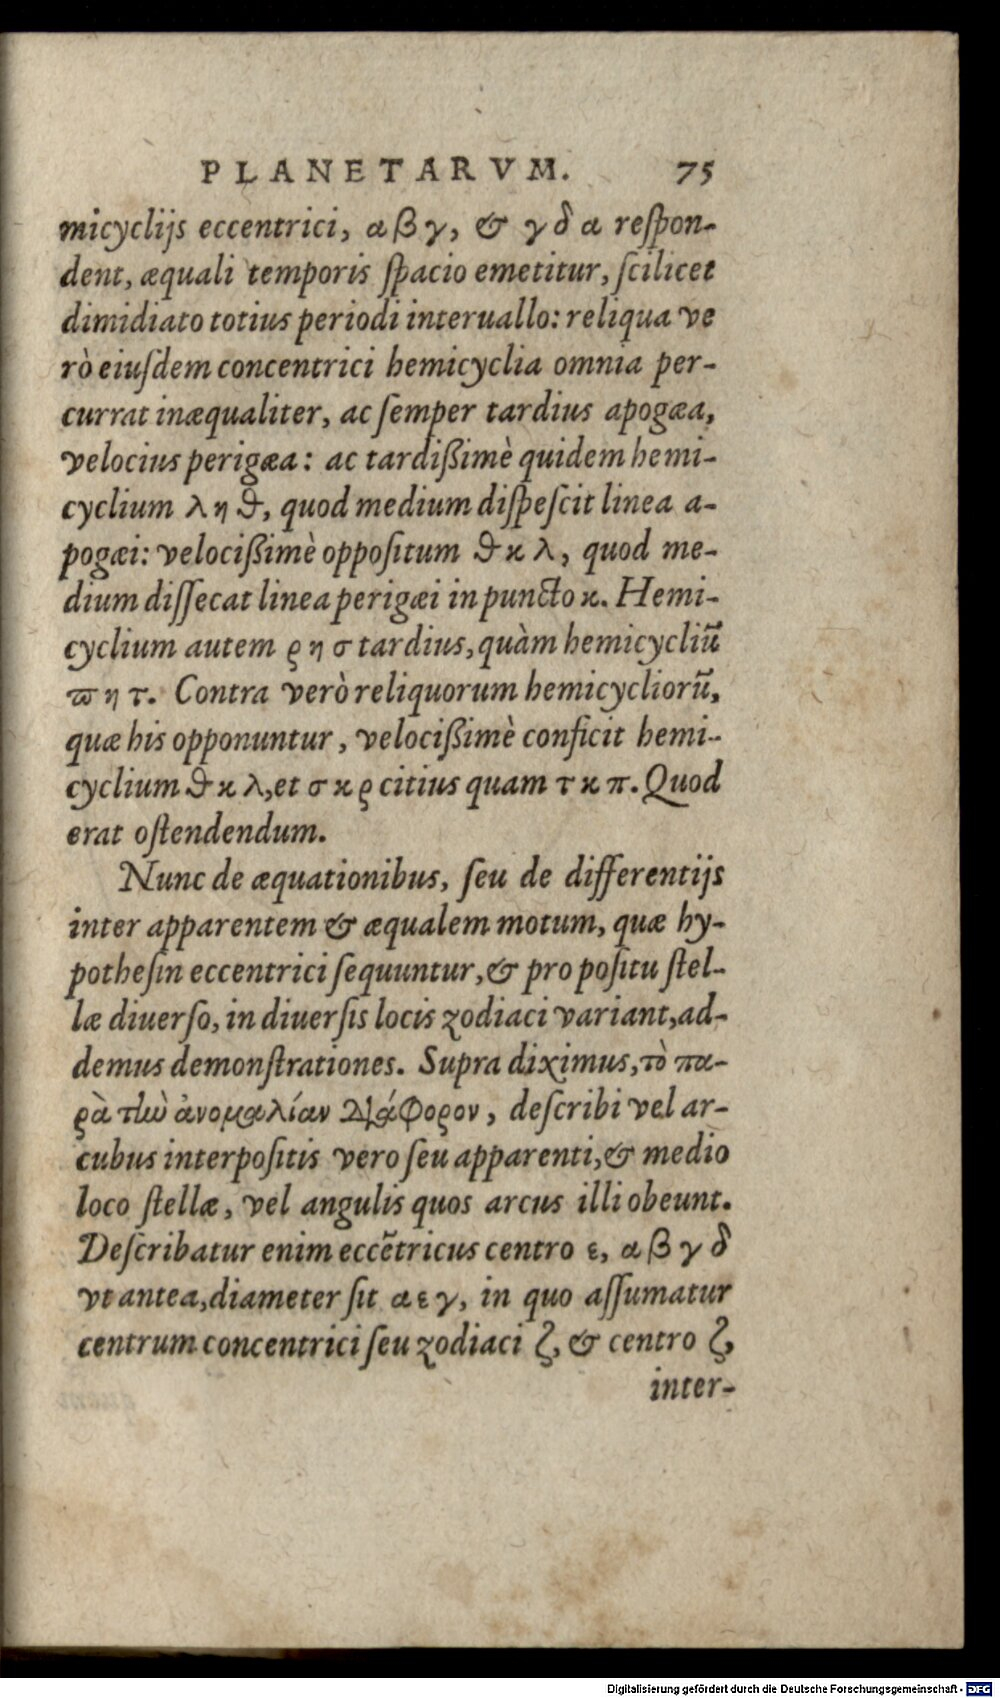 PLANETARVM. 75
micyclijs eccentrici, α β γ, & γ δ α reſpon-
dent, æquali temporis ſpacio emetitur, ſcilicet
dimidiato totius periodi interuallo: reliqua ve
rò eiuſdem concentrici hemicyclia omnia per-
currat inæqualiter, ac ſemper tardius apogæa,
velocius perigæa: ac tardißimè quidem hemi-
cyclium λ η ϑ, quod medium diſpeſcit linea a-
pogæi: velocißimè oppoſitum ϑ κ λ, quod me-
dium diſſecat linea perigæi in puncto κ. Hemi-
cyclium autem ρ η σ tardius, quàm hemicycliũ
ϖ η τ. Contra verò reliquorum hemicycliorũ,
quæ his opponuntur, velocißimè conficit hemi-
cyclium ϑ κ λ, et σ κ ρ citius quam τ κ π. Quod
erat oſtendendum.
Nunc de æquationibus, ſeu de differentijs
inter apparentem & æqualem motum, quæ hy-
potheſin eccentrici ſequuntur, & pro poſitu ſtel-
læ diuerſo, in diuerſis locis zodiaci variant, ad-
demus demonſtrationes. Supra diximus, τὸ πα-
ρὰ τὴν ἀνομαλίαν διάφορον, deſcribi vel ar-
cubus interpoſitis vero ſeu apparenti, & medio
loco ſtellæ, vel angulis quos arcus illi obeunt.
Deſcribatur enim eccẽtricus centro ε, α β γ δ
vt antea, diameter ſit α ε γ, in quo aſſumatur
centrum concentrici ſeu zodiaci ζ, & centro ζ,
inter-
Digitalisierung gefördert durch die Deutsche Forschungsgemeinschaft - DFG